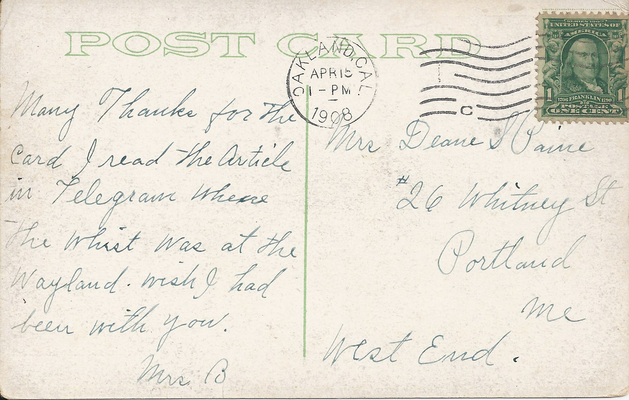 POST CARD
OAKLAND, CAL.
APR 15
1-PM
1908
C
UNITED STATES OF AMERICA
FRANKLIN
POSTAGE
1 ONE CENT 1
Many Thanks for the
Card I read the Article
in Telegram where
the whist was at the
Wayland. wish I had
been with you.
Mrs. B
Mrs Deane S Paine
#26 Whitney St
Portland
Me
West End.